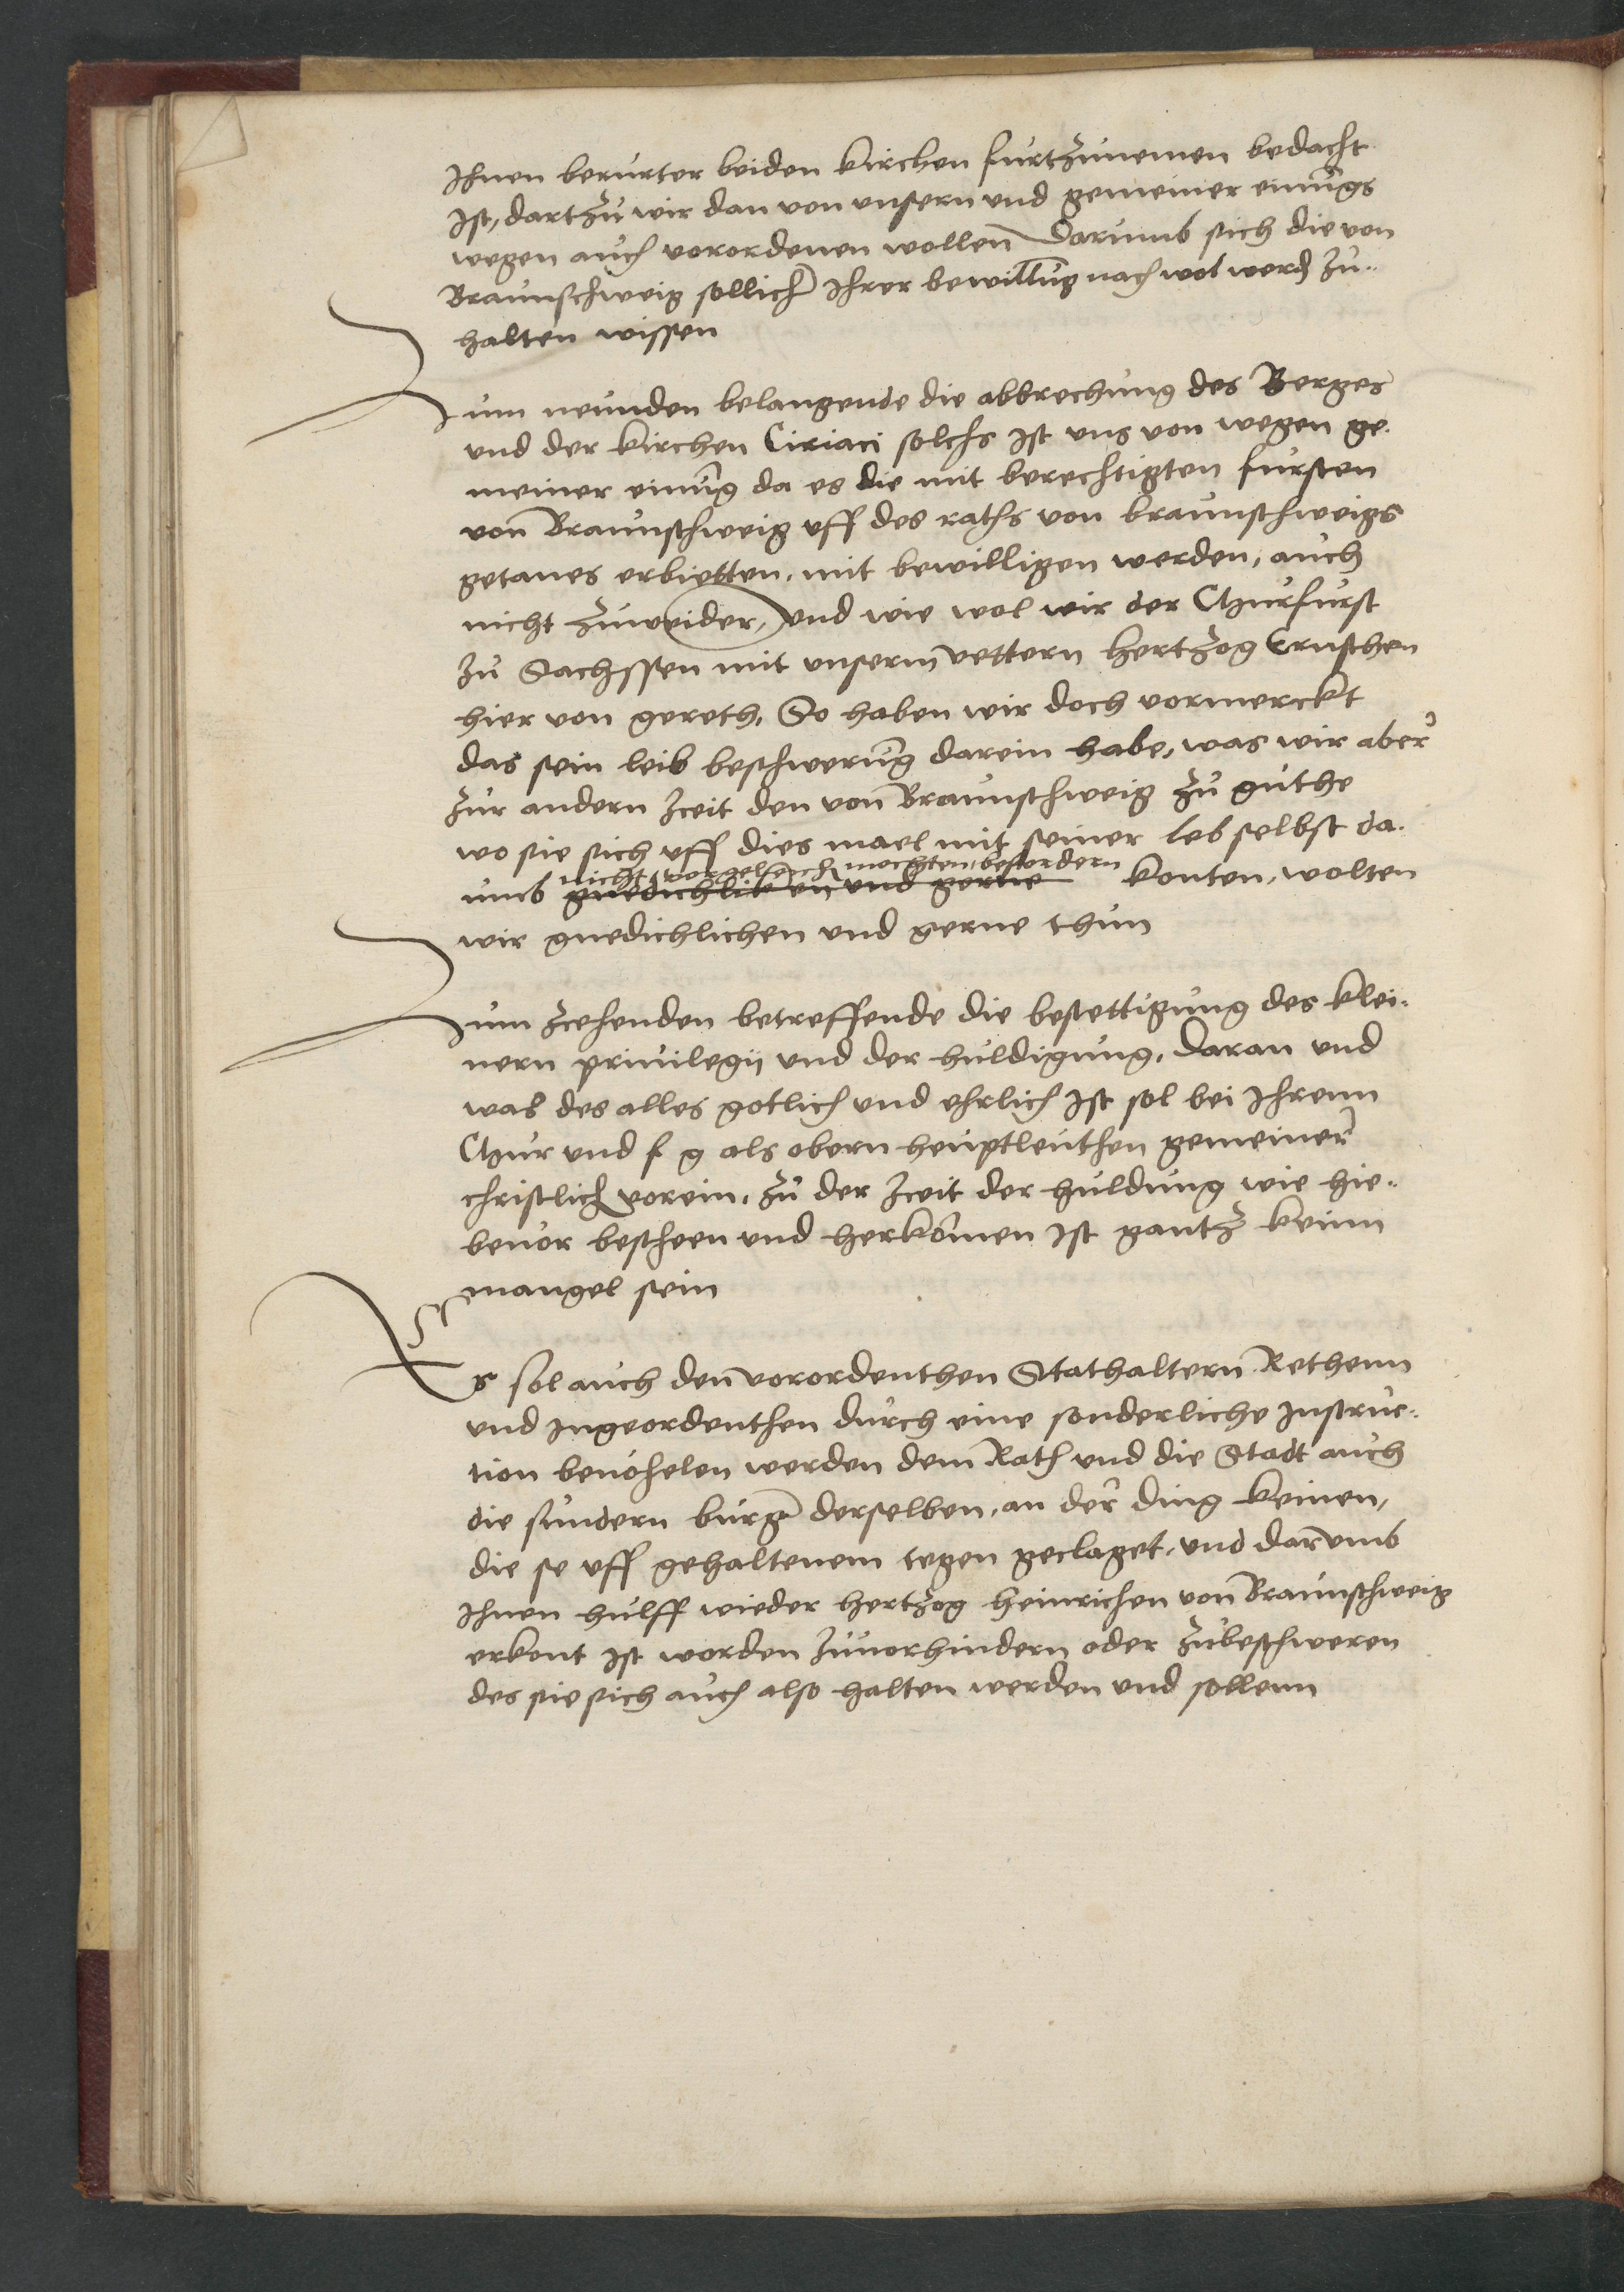 Ihnen berurter beiden kirchen furtzunemen bedacht
Ist, dartzu wir dan von unsern und gemeiner einungs
wegen auch vorordenen wollen Darumb sich die von
Braunschweig sollicher Ihrer bewillung nach wol werden zu¬
halten wissen
Zum neunden belangende die abbrechung des Berges
und der kirchen Ciriaci solchs Ist uns von wegen ge¬
meiner einung da es die mit berechtigten fursten
von Braunschweig uff des raths von braunschweigs
getanes erbietten, mit bewilligen werden, auch
nicht zuweider, und wie wol wir der Churfurst
zu Sachssen mit unserm vettern hertzog Ernsthen
hier von gereth, So haben wir doch vormerckt
das sein leib beschwerung darein habe, was wir aber
zur andern Zceit den von Braunschweig zu guthe
wo sie sich uff dies mael mit seiner leb selbst da¬
nicht vorgleich mochten, befordern
umb gnedichlichen und gerne konten, wolten
wir gnedichlichen und gerne thun
Zum zcehenden betreffende die bestettigung des klei¬
nern privilegii und der huldigung, daran und
was des alles gotlich und ehrlich Ist sol bei Ihrenn
Chur und f g als obern heuptleuthen gemeiner
christlich vorein, zu der Zceit der huldung wie hie¬
bevor bescheen und herkomen Ist gantz keinn
mangel sein
Es sol auch den vorordenthen Stathaltern Rethenn
und Ingeordenthen durch eine sonderliche Instruc¬
tion bevohelen werden dem Rath und die Stadt auch
die sundern burger derselben, an der ding keinen,
die se uff gehaltenem tegen geclaget, und darumb
Ihnen hulff wieder hertzog Heinrichen von Braunschweig
erkent Ist worden zuvorhindern oder zubeschweren
des sie sich auch also halten werden und sollenn